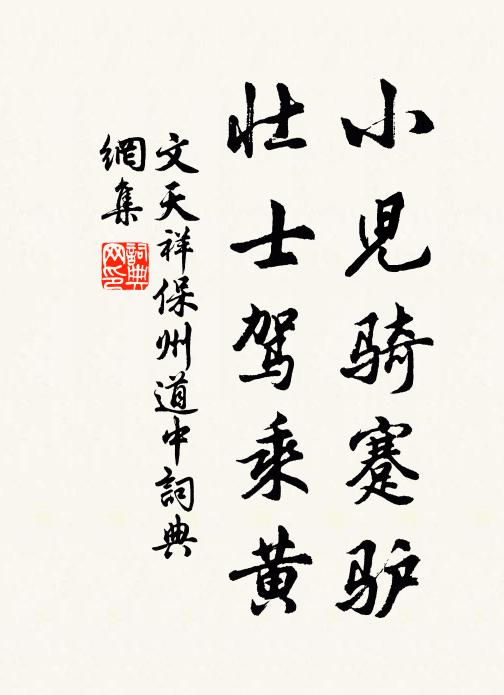 小児骑蹇驴
壮士驾乘黄
文天祥保州道中詞典
網集
詞典
网印